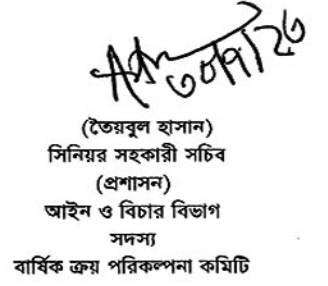 ৩০/৭/২৩
(তৈয়বুল হাসান)
সিনিয়র সহকারী সচিব
(প্রশাসন)
আইন ও বিচার বিভাগ
সদস্য
বার্ষিক ক্রয় পরিকল্পনা কমিটি